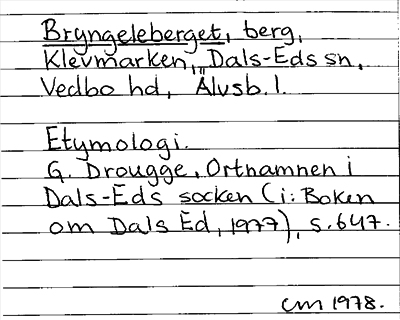 Bryngeleberget, berg,
Klevmarken, Dals-Eds sn,
Vedbo hd, Älvsb. l.
Etymologi.
G. Drougge, Ortnamnen i
Dals-Eds socken (i: Boken
om Dals Ed, 1977), s. 647.
cm 1978.